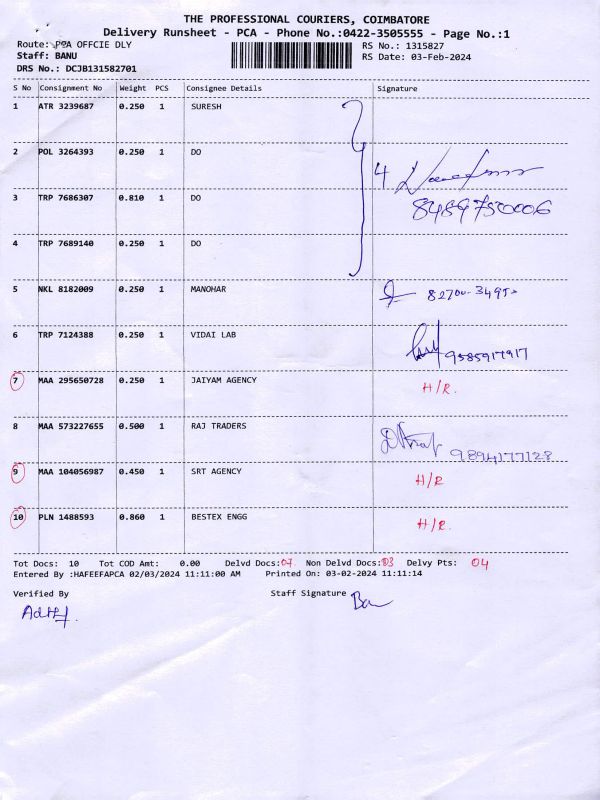 THE PROFESSIONAL COURIERS, COIMBATORE
Delivery Runsheet - PCA - Phone No.:0422-3505555 - Page No.:1
Route: PCA OFFCIE DLY RS No.: 1315827
Staff: BANU RS Date: 03-Feb-2024
DRS No.: DCJB131582701
S No Consignment No Weight PCS Consignee Details Signature
1 ATR 3239687 0.250 1 SURESH
2 POL 3264393 0.250 1 DO 4
3 TRP 7686307 0.810 1 DO 8489750006
4 TRP 7689140 0.250 1 DO
5 NKL 8182009 0.250 1 MANOHAR
6 TRP 7124388 0.250 1 VIDAI LAB 9585917917
7 MAA 295650728 0.250 1 JAIYAM AGENCY H/R.
8 MAA 573227655 0.500 1 RAJ TRADERS 9894177128
9 MAA 104056987 0.450 1 SRT AGENCY H/R
10 PLN 1488593 0.860 1 BESTEX ENGG H/R.
Tot Docs: 10 Tot COD Amt: 0.00 Delvd Docs:07 Non Delvd Docs:03 Delvy Pts: 04
Entered By :HAFEEFAPCA 02/03/2024 11:11:00 AM Printed On: 03-02-2024 11:11:14
Verified By Staff Signature